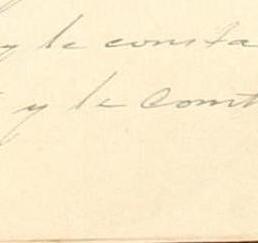 y le consta
y le Const